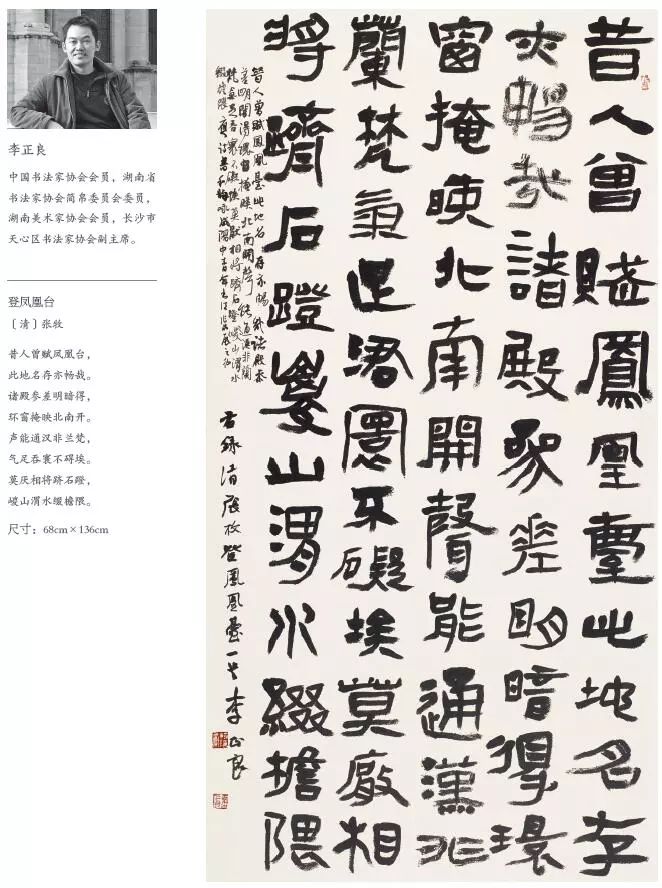 李正良
中国书法家协会会员，湖南省
书法家协会简帛委员会委员，
湖南美术家协会会员，长沙市
天心区书法家协会副主席。
登凤凰台
〔清〕张牧
昔人曾赋凤凰台，
此地名存亦畅哉。
诸殿参差明暗得，
环窗掩映北南开。
声能通汉非兰梵，
气足吞寰不碍埃。
莫厌相将跻石磴，
峻山渭水缀檐隈。
尺寸：68cm×136cm
昔人曾賦鳳凰臺此地名存
亦暢哉諸殿參差明暗得環
窗掩映北南開聲能通漢非
蘭梵氣足吞圜不礙埃莫厭相
將躋石蹬峻山渭水綴檐隈
右錄清張牧登鳳凰臺一首 李正良